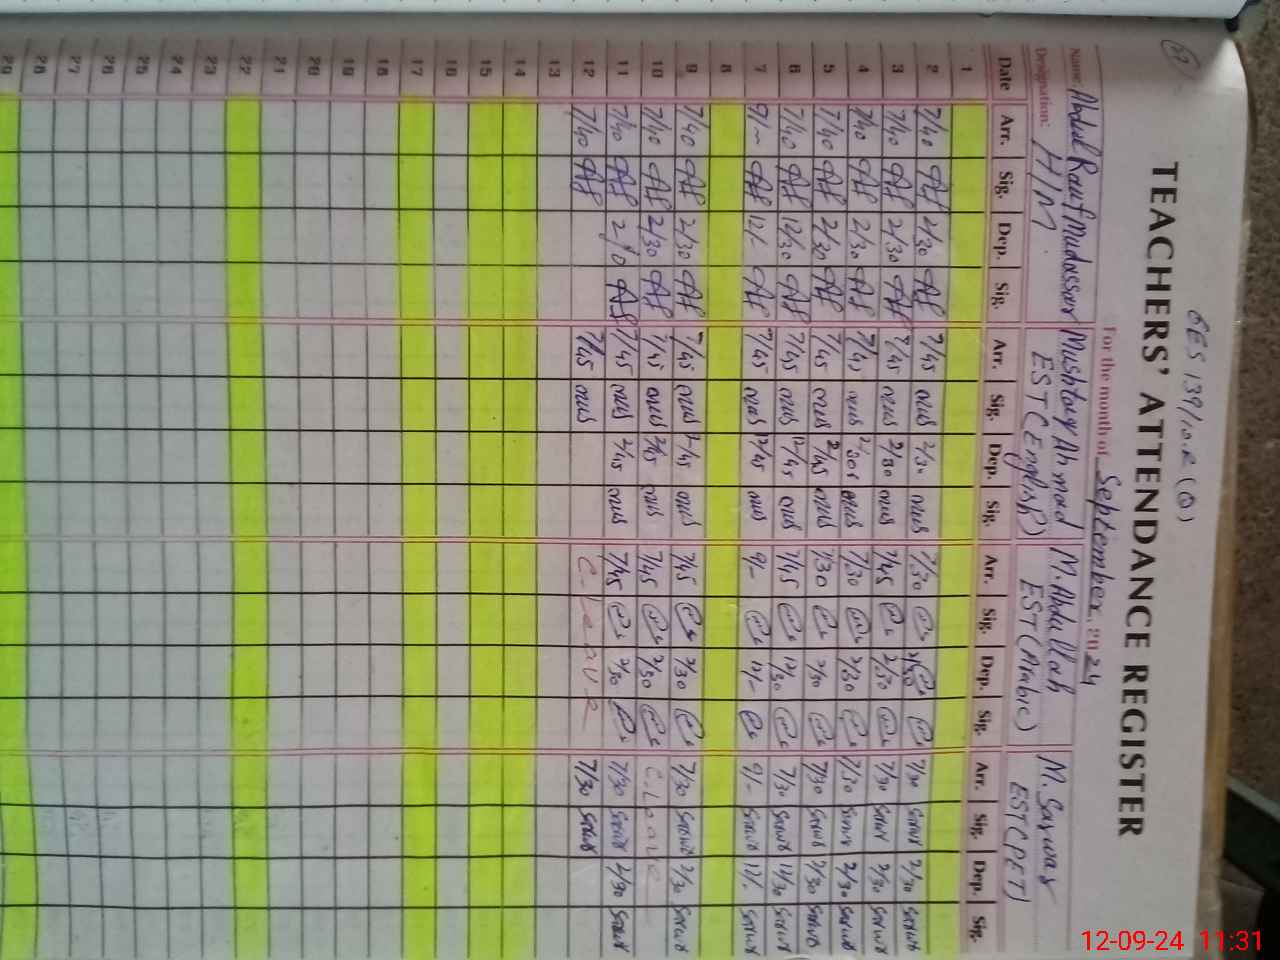 27
GES 139/10.R (B)
TEACHERS' ATTENDANCE REGISTER
For the month of September, 2024
Name: Abdul Rauf Mudassar Mushtaq Ahmad M. Abdullah M. Sarwar
Designation: H/M EST (English) EST (Arabic) EST (PET)
Date Arr. Sig. Dep. Sig. Arr. Sig. Dep. Sig. Arr. Sig. Dep. Sig. Arr. Sig. Dep. Sig.
1
2 7/40 2/30 7/45 2/30 7/30 2/30 7/30 Sarwar 2/30 Sarwar
3 7/40 2/30 7/45 2/30 7/45 2/30 7/30 Sarwar 2/30 Sarwar
4 7/40 2/30 7/45 2/30 7/30 2/30 7/30 Sarwar 2/30 Sarwar
5 7/40 2/30 7/45 2/45 7/30 2/30 7/30 Sarwar 2/30 Sarwar
6 7/40 12/30 7/45 12/45 7/45 12/30 7/30 Sarwar 12/30 Sarwar
7 9/- 12/- 7/45 12/45 9/- 12/- 9/- Sarwar 12/- Sarwar
8
9 7/40 2/30 7/45 2/45 7/45 2/30 7/30 Sarwar 2/30 Sarwar
10 7/40 2/30 7/45 2/45 7/45 2/30 C. Leave
11 7/40 7/45 2/45 7/45 2/30 7/30 Sarwar 2/30 Sarwar
12 7/40 7/45 C. Leave 7/30 Sarwar
13
14
15
16
17
18
19
20
21
22
23
24
25
26
27
28
29
12-09-24 11:31